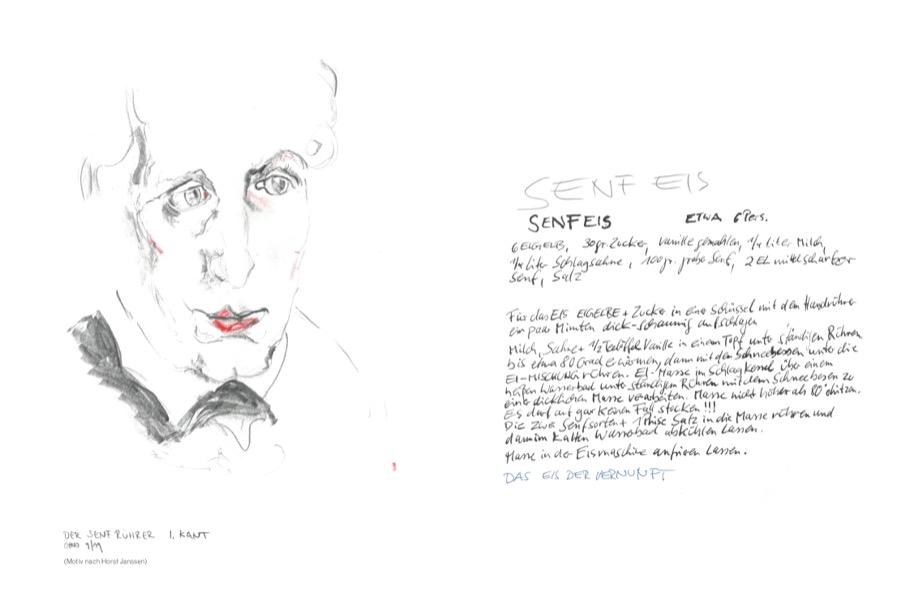 SENF EIS
SENFEIS ETWA 6 Pers.
6 EIGELB, 30 gr. Zucker, Vanille gemahlen, 1/4 Liter Milch,
1/4 Liter Schlagsahne, 100 gr. grober Senf, 2 EL mittelscharfer
Senf, Salz
Für das EIS EIGELBE + Zucker in eine Schüssel mit dem Handrührer
ein paar Minuten dick-schaumig aufschlagen
Milch, Sahne + 1/2 Teelöffel Vanille in einem Topf unter ständigen Rühren
bis etwa 80 Grad erwärmen, dann mit dem Schneebesen unter die
EI-MISCHUNG rühren. EI-Masse im Schlagkessel über einem
heißen Wasserbad unter ständigem Rühren mit dem Schneebesen zu
einer dicklichen Masse verarbeiten. Masse nicht höher als 80° erhitzen.
Es darf auf gar keinen Fall stocken !!!
Die zwei Senfsorten + 1 Prise Salz in die Masse rühren und
dann im kalten Wasserbad abkühlen lassen.
Masse in der Eismaschine anfrieren lassen.
DAS EIS DER VERNUNFT
DER SENF RÜHRER I. KANT
9/19
(Motiv nach Horst Janssen)